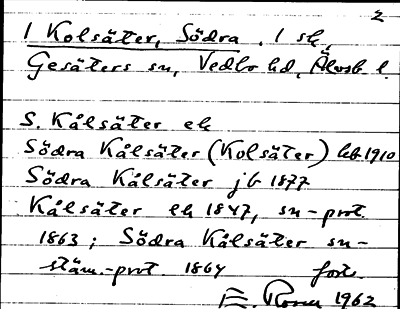 2
1 Kolsäter, Södra. 1 sk,
Gesäters sn, Vedbo hd, Älvsb l.
S. Kålsäter ek
Södra Kålsäter (Kolsäter) hb 1910
Södra Kålsäter jb 1877
Kålsäter ek 1847, sn-prot.
1863; Södra Kålsäter sn-
stäm.-prot. 1864 forts.
E. 1962